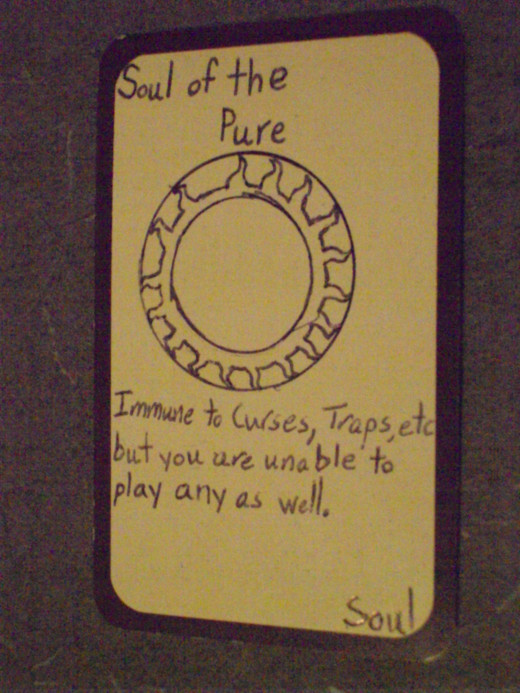 Soul of the
Pure
Immune to Curses, Traps, etc
but you are unable to
play any as well.
Soul